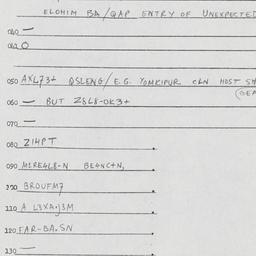 ELOHIM BA/QAP ENTRY OF UNEXPECTED
040 —
050 AXL73+ QSLENG/E.G. YOMKIPUR CLN HOST SH
(GEA
060 — BUT Z8L8-0K3+
070 —
080 ZIHPT
090 MERE4L8-N BE4NC+N,
100 BROUFM7
110 A L3XA.J3M
120 FAR-BA.SN
130 —